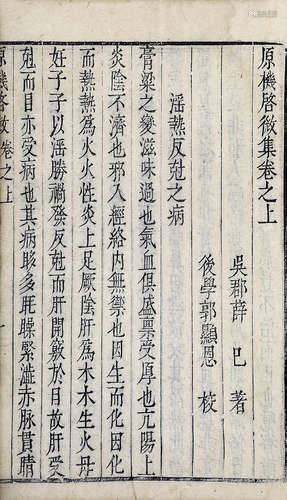 原機啓微集卷之上
吳郡薛己著
後學郭顯恩校
淫熱反尅之病
膏粱之變滋味過也氣血俱盛稟受厚也亢陽上
炎陰不濟也邪入經絡內無禦也因生而化因化
而熱熱爲火火性炎上足厥陰肝爲木木生火母
妊子子以淫勝禍發反尅而肝開竅於目故肝受
尅而目亦受病也其病眵多眊矂緊澁赤脉貫睛
原機啓微 卷之上